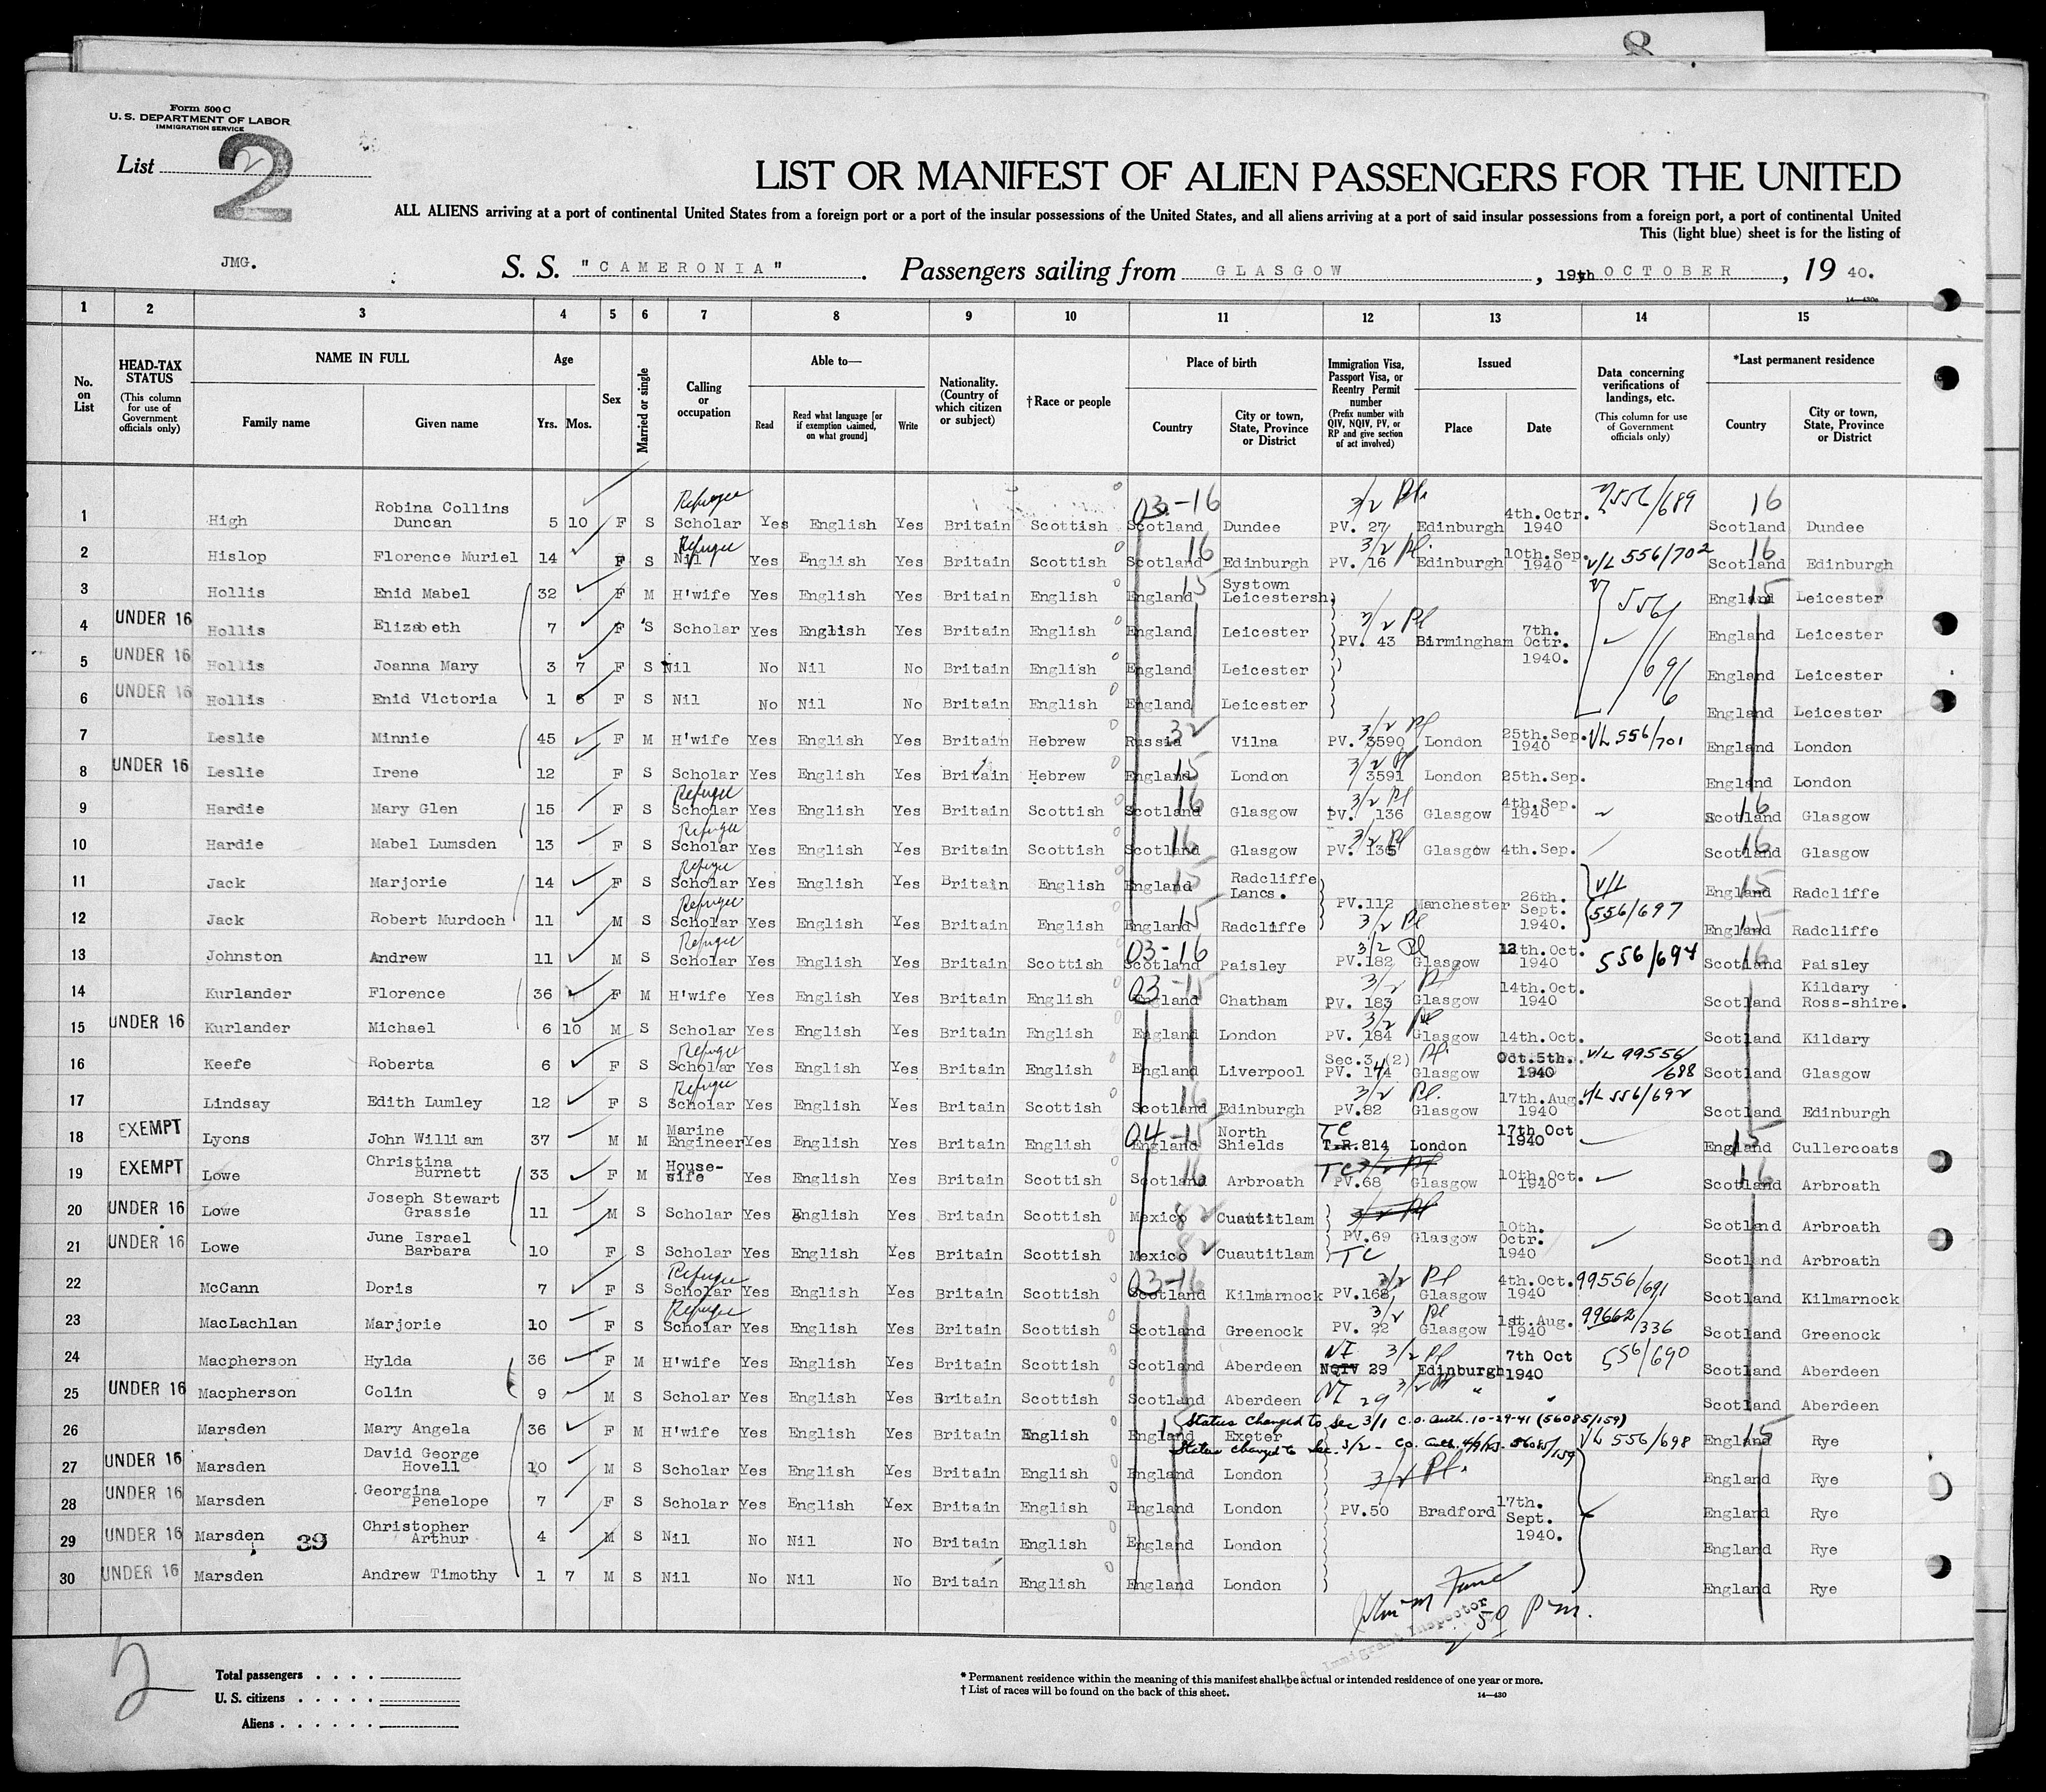 8
Form 500 C
U. S. DEPARTMENT OF LABOR
IMMIGRATION SERVICE
List 2
2
LIST OR MANIFEST OF ALIEN PASSENGERS FOR THE UNITED
ALL ALIENS arriving at a port of continental United States from a foreign port or a port of the insular possessions of the United States, and all aliens arriving at a port of said insular possessions from a foreign port, a port of continental United
This (light blue) sheet is for the listing of
JMG. S. S. "CAMERONIA". Passengers sailing from GLASGOW, 19th OCTOBER, 19 40.
14—430a
1 2 3 4 5 6 7 8 9 10 11 12 13 14 15
No. on List
HEAD-TAX STATUS (This column for use of Government officials only)
NAME IN FULL Family name Given name
Age Yrs. Mos.
Sex
Married or single
Calling or occupation
Able to— Read Read what language [or if exemption claimed, on what ground] Write
Nationality. (Country of which citizen or subject)
† Race or people
Place of birth Country City or town, State, Province or District
Immigration Visa, Passport Visa, or Reentry Permit number (Prefix number with QIV, NQIV, PV, or RP and give section of act involved)
Issued Place Date
Data concerning verifications of landings, etc. (This column for use of Government officials only)
*Last permanent residence Country City or town, State, Province or District
1 High Robina Collins Duncan 5 10 F S Refugee Scholar Yes English Yes Britain Scottish 03-16 Scotland Dundee 3/2 Pl. PV. 27 Edinburgh 4th. Octr. 1940 556/689 16 Scotland Dundee
2 Hislop Florence Muriel 14 F S Refugee Nil Yes English Yes Britain Scottish 16 Scotland Edinburgh 3/2 Pl. PV. 16 Edinburgh 10th. Sep. 1940 V/L 556/702 16 Scotland Edinburgh
3 Hollis Enid Mabel 32 F M H'wife Yes English Yes Britain English 15 England Systown Leicestersh. 556/ 15 England Leicester
4 UNDER 16 Hollis Elizabeth 7 F S Scholar Yes English Yes Britain English England Leicester 3/2 Pl PV. 43 Birmingham 7th. Octr. 1940. England Leicester
5 UNDER 16 Hollis Joanna Mary 3 7 F S Nil No Nil No Britain English England Leicester /696 England Leicester
6 UNDER 16 Hollis Enid Victoria 1 6 F S Nil No Nil No Britain English England Leicester England Leicester
7 Leslie Minnie 45 F M H'wife Yes English Yes Britain Hebrew 32 Russia Vilna 3/2 Pl PV. 3590 London 25th. Sep. 1940 V/L 556/701 England London
8 UNDER 16 Leslie Irene 12 F S Scholar Yes English Yes Britain Hebrew 15 England London 3/2 Pl 3591 London 25th. Sep. England London
9 Hardie Mary Glen 15 F S Refugee Scholar Yes English Yes Britain Scottish 16 Scotland Glasgow 3/2 Pl PV. 136 Glasgow 4th. Sep. 1940 16 Scotland Glasgow
10 Hardie Mabel Lumsden 13 F S Refugee Scholar Yes English Yes Britain Scottish 16 Scotland Glasgow 3/2 Pl PV. 135 Glasgow 4th. Sep. 16 Scotland Glasgow
11 Jack Marjorie 14 F S Refugee Scholar Yes English Yes Britain English 15 England Radcliffe Lancs. V/L 15 England Radcliffe
12 Jack Robert Murdoch 11 M S Refugee Scholar Yes English Yes Britain English 15 England Radcliffe PV.112 3/2 Pl Manchester 26th. Sept. 1940. 556/697 15 England Radcliffe
13 Johnston Andrew 11 M S Refugee Scholar Yes English Yes Britain Scottish 03-16 Scotland Paisley 3/2 Pl PV.182 Glasgow 12th. Oct. 1940 556/694 16 Scotland Paisley
14 Kurlander Florence 36 F M H'wife Yes English Yes Britain English 03-15 England Chatham 3/2 Pl PV. 183 Glasgow 14th. Oct. 1940 Scotland Kildary Ross-shire.
15 UNDER 16 Kurlander Michael 6 10 M S Scholar Yes English Yes Britain English England London 3/2 Pl PV. 184 Glasgow 14th. Oct. Scotland Kildary
16 Keefe Roberta 6 F S Refugee Scholar Yes English Yes Britain English England Liverpool Sec.3 (2) Pl. PV. 144 Glasgow Oct. 5th. 1940 V/L 99556/688 Scotland Glasgow
17 Lindsay Edith Lumley 12 F S Refugee Scholar Yes English Yes Britain Scottish 16 Scotland Edinburgh 3/2 Pl. PV.82 Glasgow 17th. Aug. 1940 V/L 556/692 Scotland Edinburgh
18 EXEMPT Lyons John William 37 M M Marine Engineer Yes English Yes Britain English 04-15 England North Shields TC T.R.814 London 17th Oct 1940 15 England Cullercoats
19 EXEMPT Lowe Christina Burnett 33 F M House-wife Yes English Yes Britain Scottish 16 Scotland Arbroath TC 3/2 Pl PV.68 Glasgow 10th. Oct. 1940 16 Scotland Arbroath
20 UNDER 16 Lowe Joseph Stewart Grassie 11 M S Scholar Yes English Yes Britain Scottish 82 Mexico Cuautitlam 3/2 Pl Scotland Arbroath
21 UNDER 16 Lowe June Israel Barbara 10 F S Scholar Yes English Yes Britain Scottish 82 Mexico Cuautitlam PV.69 TC Glasgow 10th. Octr. 1940 Scotland Arbroath
22 McCann Doris 7 F S Refugee Scholar Yes English Yes Britain Scottish 03-16 Scotland Kilmarnock 3/2 Pl PV.168 Glasgow 4th. Oct. 1940 99556/691 Scotland Kilmarnock
23 MacLachlan Marjorie 10 F S Refugee Scholar Yes English Yes Britain Scottish Scotland Greenock 3/2 Pl PV. 22 Glasgow 1st. Aug. 1940 99662/336 Scotland Greenock
24 Macpherson Hylda 36 F M H'wife Yes English Yes Britain Scottish Scotland Aberdeen NI 3/2 Pl NQIV 29 Edinburgh 7th Oct 1940 556/690 Scotland Aberdeen
25 UNDER 16 Macpherson Colin 9 M S Scholar Yes English Yes Britain Scottish Scotland Aberdeen NI 29 3/2 Pl " " Scotland Aberdeen
Status changed to Sec 3/1 C.O. Auth. 10-29-41 (56085/159)
26 Marsden Mary Angela 36 F M H'wife Yes English Yes Britain English 15 England Exeter V/L 556/698 15 England Rye
Status changed to Sec. 3/2 - C.O. Auth. 56085/159
27 UNDER 16 Marsden David George Hovell 10 M S Scholar Yes English Yes Britain English England London 3/2 Pl. England Rye
28 UNDER 16 Marsden Georgina Penelope 7 F S Scholar Yes English Yex Britain English England London PV.50 Bradford 17th. Sept. 1940. England Rye
29 UNDER 16 Marsden 39 Christopher Arthur 4 M S Nil No Nil No Britain English England London England Rye
30 UNDER 16 Marsden Andrew Timothy 1 7 M S Nil No Nil No Britain English England London England Rye
Immigrant Inspector
2 50 P.m.
2
Total passengers
U. S. citizens
Aliens
* Permanent residence within the meaning of this manifest shall be actual or intended residence of one year or more.
† List of races will be found on the back of this sheet.
14—430